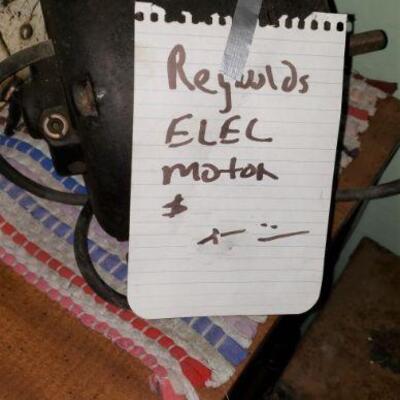 Reynolds
ELEC
motor
$